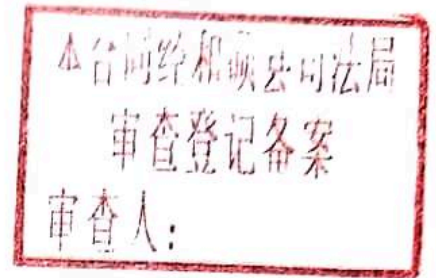 本合同经和硕县司法局
审查登记备案
审查人：